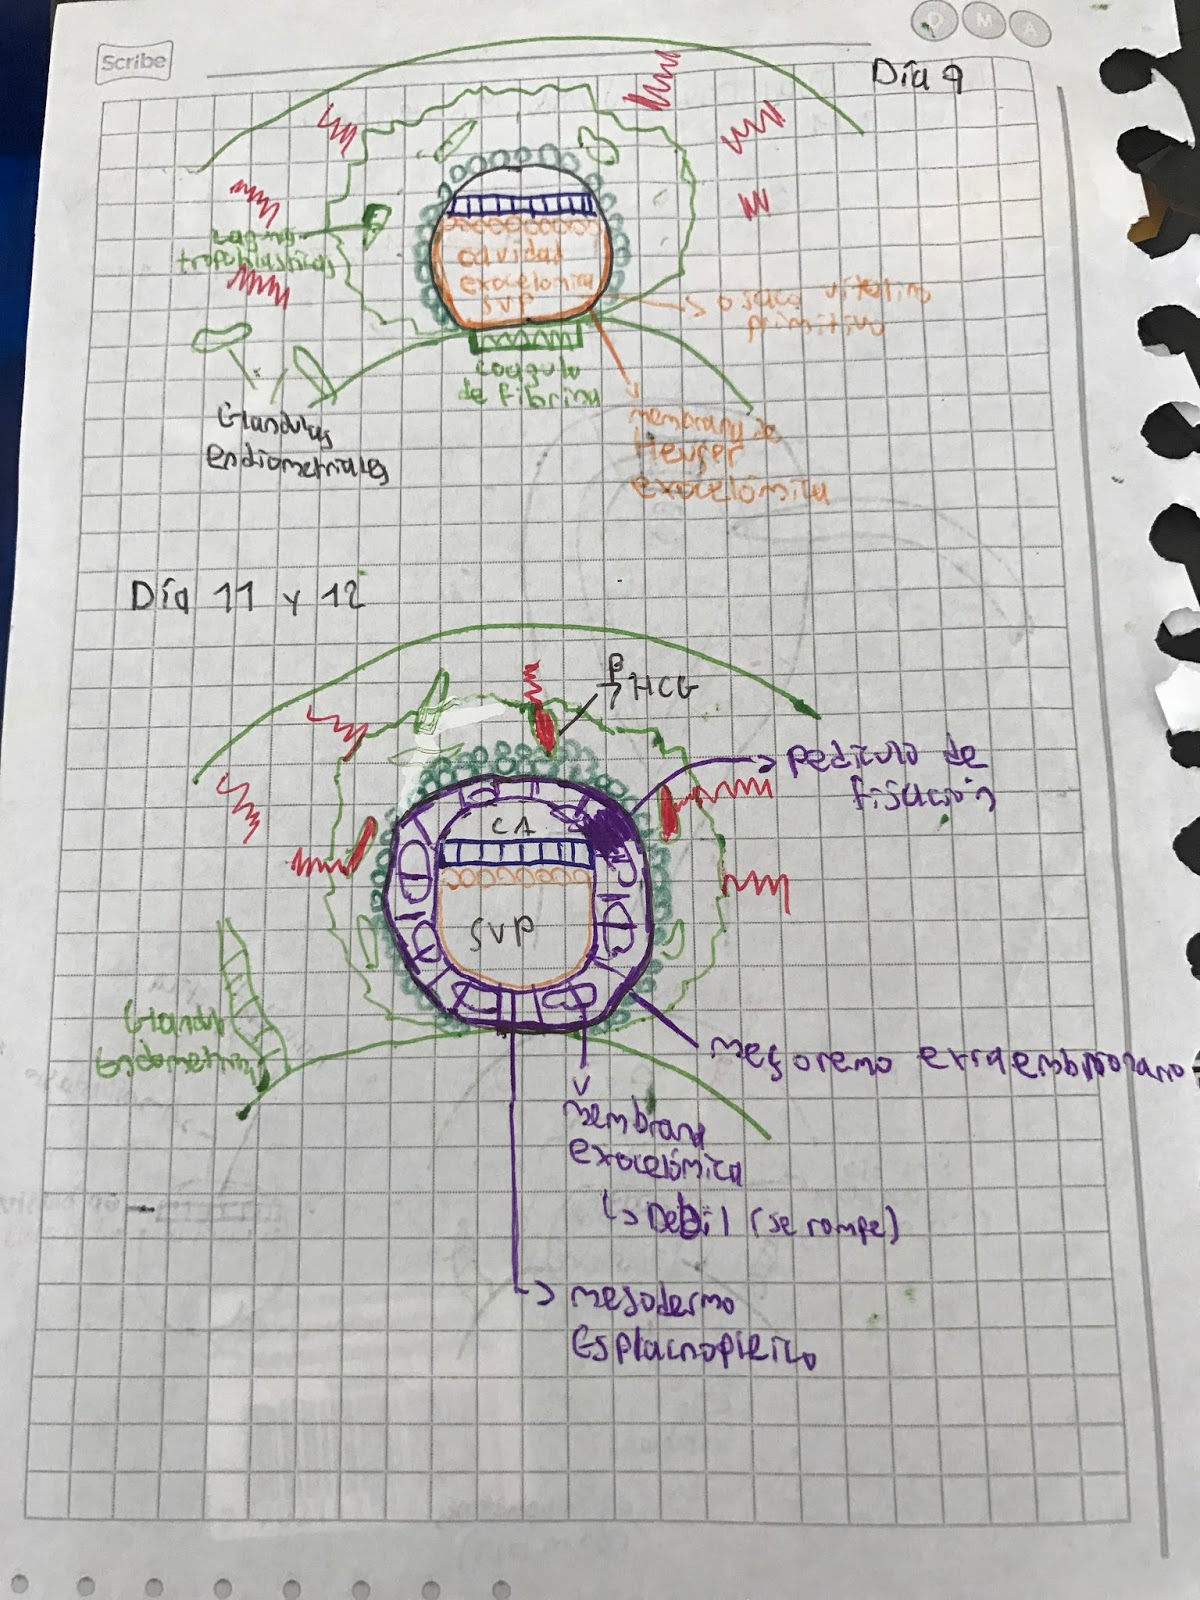 Scribe
D M A
Día 9
Lagunas
trofoblásticas
cavidad
exocelomica
SVP
o saco vitelino
primitivo
coagulo
de fibrina
Glandulas
endiometriales
membrana de
Heuser
exocelómica
Día 11 y 12
β HCG
pediculo de
fijación
CA
SVP
Glandul
Endometrial
mesoremo extraembrionario
Membrana
exocelómica
↳ Debil (se rompe)
→ mesodermo
Esplacnoplerico